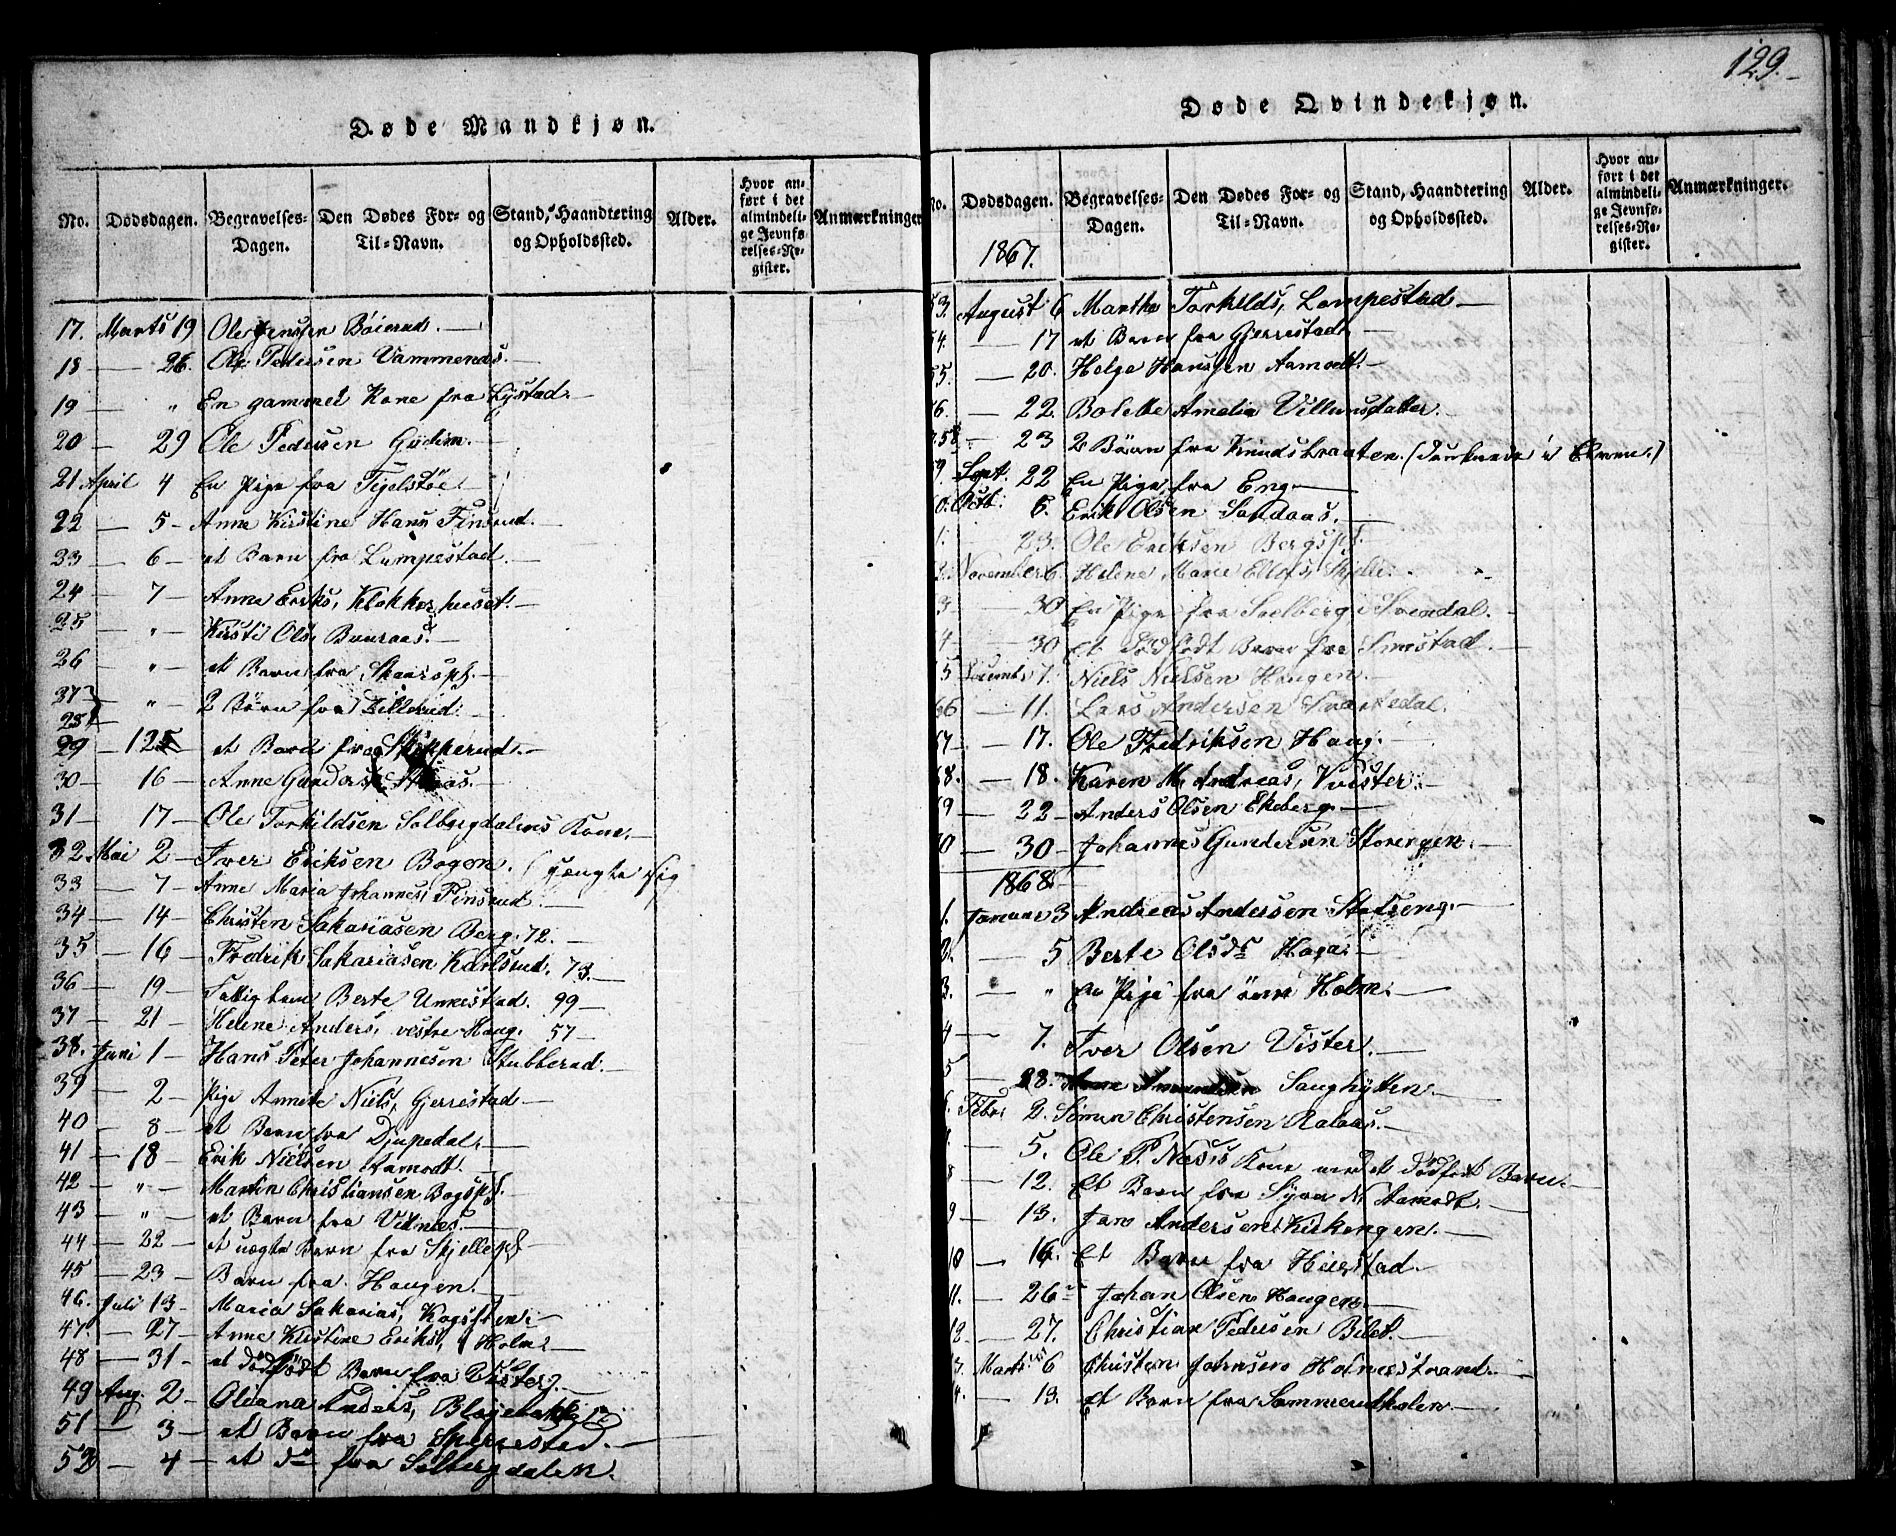 129.
Døde Mandkjøn.
No. Dødsdagen. Begravelses-Dagen. Den Dødes For- og Til-Navn. Stand, Haandtering og Opholdssted. Alder. Hvor anført i det almindelige Jevnførelses-Register. Anmærkninger
17. Marts 19 Ole Jenssen Böierud.
18 — 26. Ole Pedersen Vammenæs.
19 — " En gammel Kone fra Lystad.
20 — 29 Ole Pedersen Gudim.
21 April 4 En Pige fra
22 — 5 — Anne Kirstine Hans, Finsrud.
23 — 6 — et Barn fra Lumpestad.
24 — 7 — Anne Eriks, Klokkerhuset.
25 — " — Kirsti Ols,
26 — " — et Barn fra Skaarspf.
27 — " — 2 Børn fra
28
29 — 12 et Barn fra
30 — 16 — Anne Gunders
31 — 17 — Ole Torkildsen Solbergdalens Kone.
32 Mai 2 — Iver Eriksen Bogen. (hængte sig
33 — 7 — Anne Maria Johannes, Finsrud.
34 — 14 — Christen Sakariasen Berg. 72.
35 — 16 — Fredrik Sakariasen Karlsrud. 73.
36 — 19 — Fattiglem Berte Unnestad. 99 —
37 — 21 — Helene Anders, vestre Haug. 57 —
38. Juni 1 — Hans Peter Johannesen Stubberud.
39 — 2 — Pige Annete Niels, Gjerrestad —
40 — 8 — et Barn fra Djupedal.
41 — 18 — Erik Nielsen Aamodt.
42 — " — Martin Christiansen Bogspf.
43 — " — et Barn fra Vidnæs.
44 — 22 — et uægte Barn fra Skjellepf
45 — 23 — Barn fra Haugen.
46. Juli 13 — Maria Sakarias,
47. — 27 — Anne Kirstine Eriks, Holm.
48 — 31 — et dødfødt Barn fra Vister.
49 Aug. 2 — Oleana Anders,
51 — 3 — et Barn fra Sperrestad.
52 — 4 — et do fra Solbergdalen.
Døde Qvindekjøn.
No. Dødsdagen. Begravelses-Dagen. Den Dødes For- og Til-Navn. Stand, Haandtering og Opholdssted. Alder. Hvor anført i det almindelige Jevnførelses-Register. Anmærkninger.
1867.
53. August 6 Marthe Torkilds, Lompestad —
54. — 17 et Barn fra Gjerrestad —
55. — 20. Helge Hansen Aamodt. —
56. — 22. Bolette Amalia Villumsdatter. —
58 — 23 2 Børn fra Knudsbraaten. (druknede i Elven.)
9. Sept. 22 En Pige fra Eng. —
0. Octb. 6. Erik Olsen Sandaas.
1. — 23. Ole Eriksen Bergspf.
2. November 6. Helene Marie Skjelle.
3 — 30 En Pige fra Soelberg i Svendal.
4 — 30 et dødfødt Barn fra Smestad.
5 Decemb. 7. Niels Nielsen Haugen.
66 — 11. Lars Andersen Svartedal.
67 — 17. Ole Fredriksen Haug.
68. — 18. Karen M. Andreas, Kvister.
69 — 22 — Anders Olsen Ekeberg. —
70 — 30 — Johannes Gundersen Storengen. —
1868.
1. Januar 3 Andreas Andersen
2. — 5 Berte Olsdr Haga.
3. — " En Pige fra Holm. —
4 — 7. Iver Olsen Vister. —
5 — 28. Saughytten.
6. Febr. 2. Simen Christensen
— 5. Ole P. Næss Kone med et dødfødt Barn. —
8 — 12. Et Barn fra Aamodt. —
9 — 13. Jans Andersen Kirkengen. —
10 — 16. Et Barn fra
11. — 26 Johan Olsen Haugen. —
12. — 27. Christian Pedersen Bilet. —
3. Marts 6 Christen Johnsen Holmesstrand. —
4. — 13. Et Barn fra